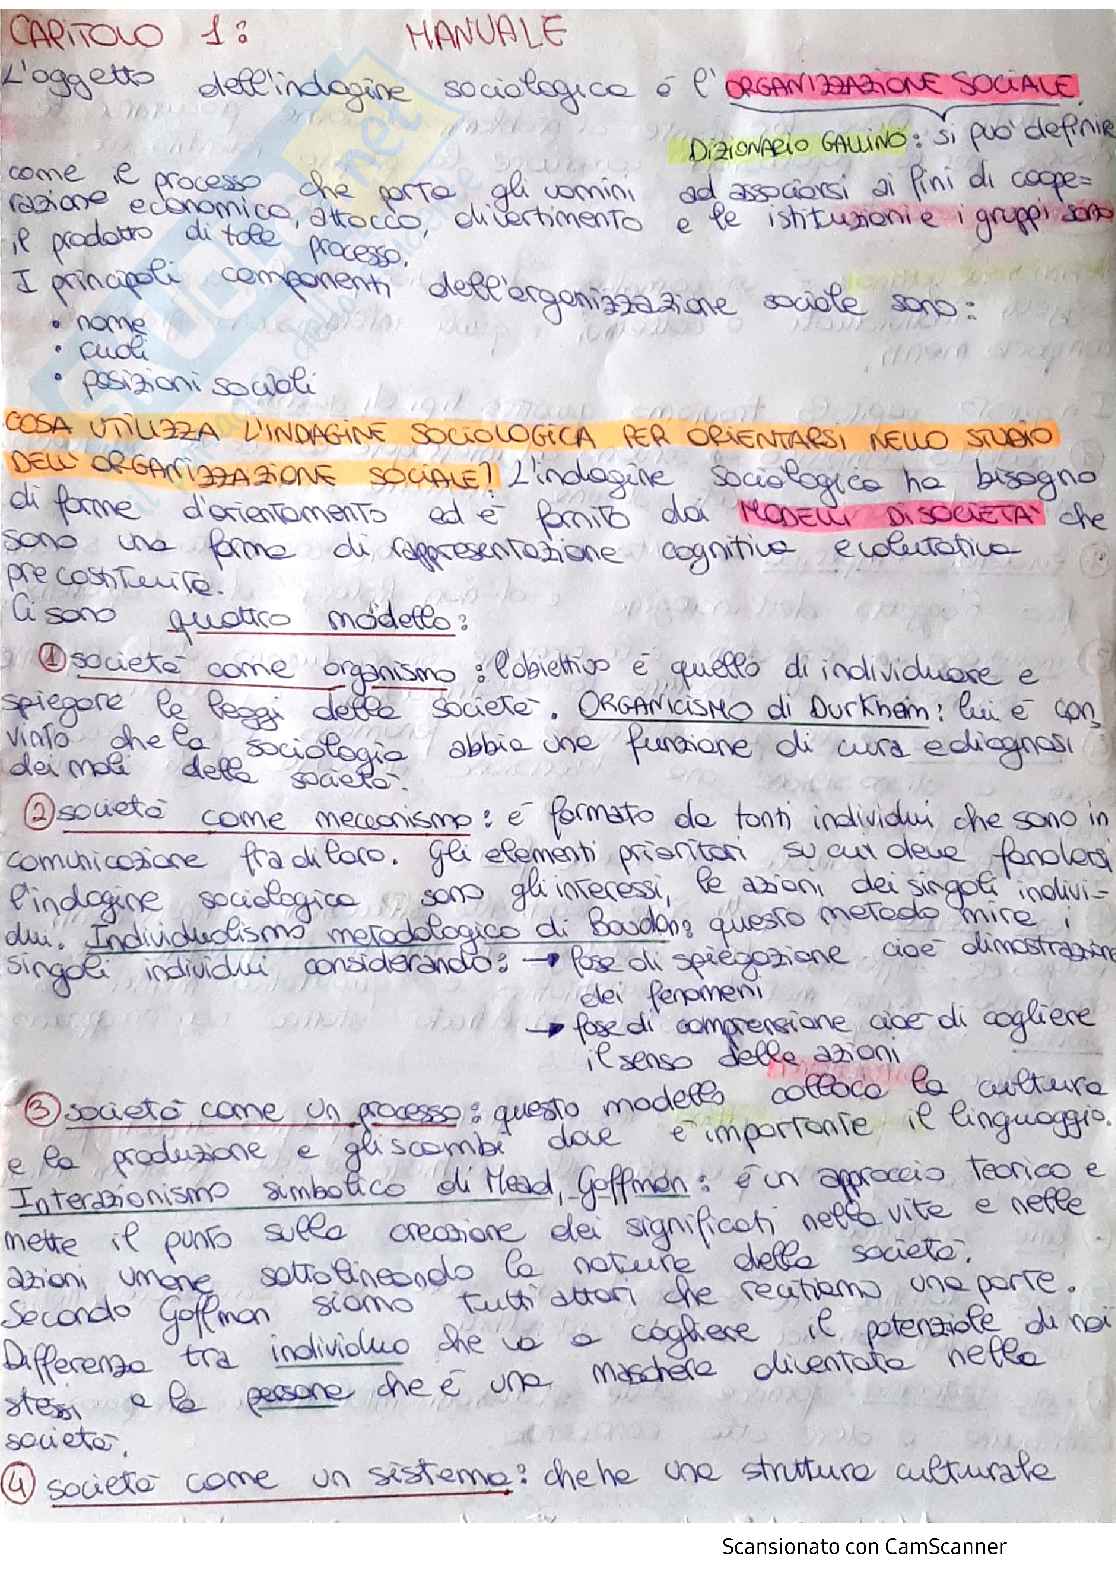 CAPITOLO 1: MANUALE
L'oggetto dell'indagine sociologica è l'ORGANIZZAZIONE SOCIALE.
DIZIONARIO GALLINO: si può definire
come il processo che porta gli uomini ad associarsi ai fini di coope=
razione economica, attacco, divertimento e le istituzioni e i gruppi sono
il prodotto di tale processo.
I principali componenti dell'organizzazione sociale sono:
• nome
• ruoli
• posizioni sociali
COSA UTILIZZA L'INDAGINE SOCIOLOGICA PER ORIENTARSI NELLO STUDIO
DELL'ORGANIZZAZIONE SOCIALE? L'indagine sociologica ha bisogno
di forme d'orientamento ed è fornito dai MODELLI DI SOCIETÀ che
sono una forma di rappresentazione cognitiva e valutativa
precostituita.
Ci sono quattro modello:
① società come organismo: l'obiettivo è quello di individuare e
spiegare le leggi della società. ORGANICISMO di Durkheim: lui è con
vinto che la sociologia abbia una funzione di cura e diagnosi
dei mali della società.
② società come meccanismo: è formato da tanti individui che sono in
comunicazione fra di loro. Gli elementi prioritari su cui deve fondarsi
l'indagine sociologica sono gli interessi, le azioni dei singoli indivi-
dui. Individualismo metodologico di Boudon: questo metodo mira i
singoli individui considerando: → fase di spiegazione cioè dimostrazione
dei fenomeni
→ fase di comprensione cioè di cogliere
il senso delle azioni
③ società come un processo: questo modello colloca la cultura
e la produzione e gli scambi dove è importante il linguaggio.
Interazionismo simbolico di Mead, Goffman: è un approccio teorico e
mette il punto sulla creazione dei significati nella vita e nelle
azioni umane sottolineando la natura della società.
Secondo Goffman siamo tutti attori che recitiamo una parte.
Differenza tra individuo che va a cogliere il potenziale di noi
stessi e la persona che è una maschera diventata nella
società.
④ società come un sistema: che ha una struttura culturale
Scansionato con CamScanner